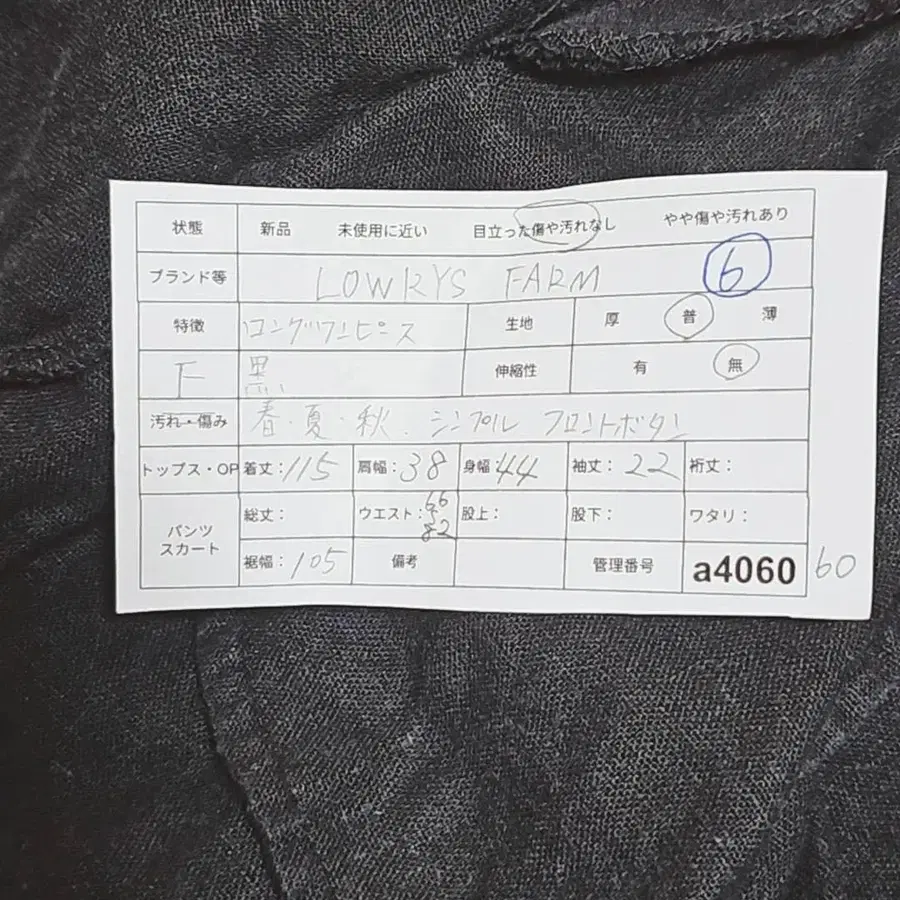 状態 新品 未使用に近い 目立った傷や汚れなし やや傷や汚れあり
ブランド等 LOWRYS FARM 6
特徴 ロングワンピース 生地 厚 普 薄
F 黒 伸縮性 有 無
汚れ・傷み 春・夏・秋. シンプル フロントボタン
トップス・OP 着丈:115 肩幅:38 身幅:44 袖丈:22 裄丈:
パンツ スカート 総丈: ウエスト:66 82 股上: 股下: ワタリ:
裾幅:105 備考 管理番号 a4060 60